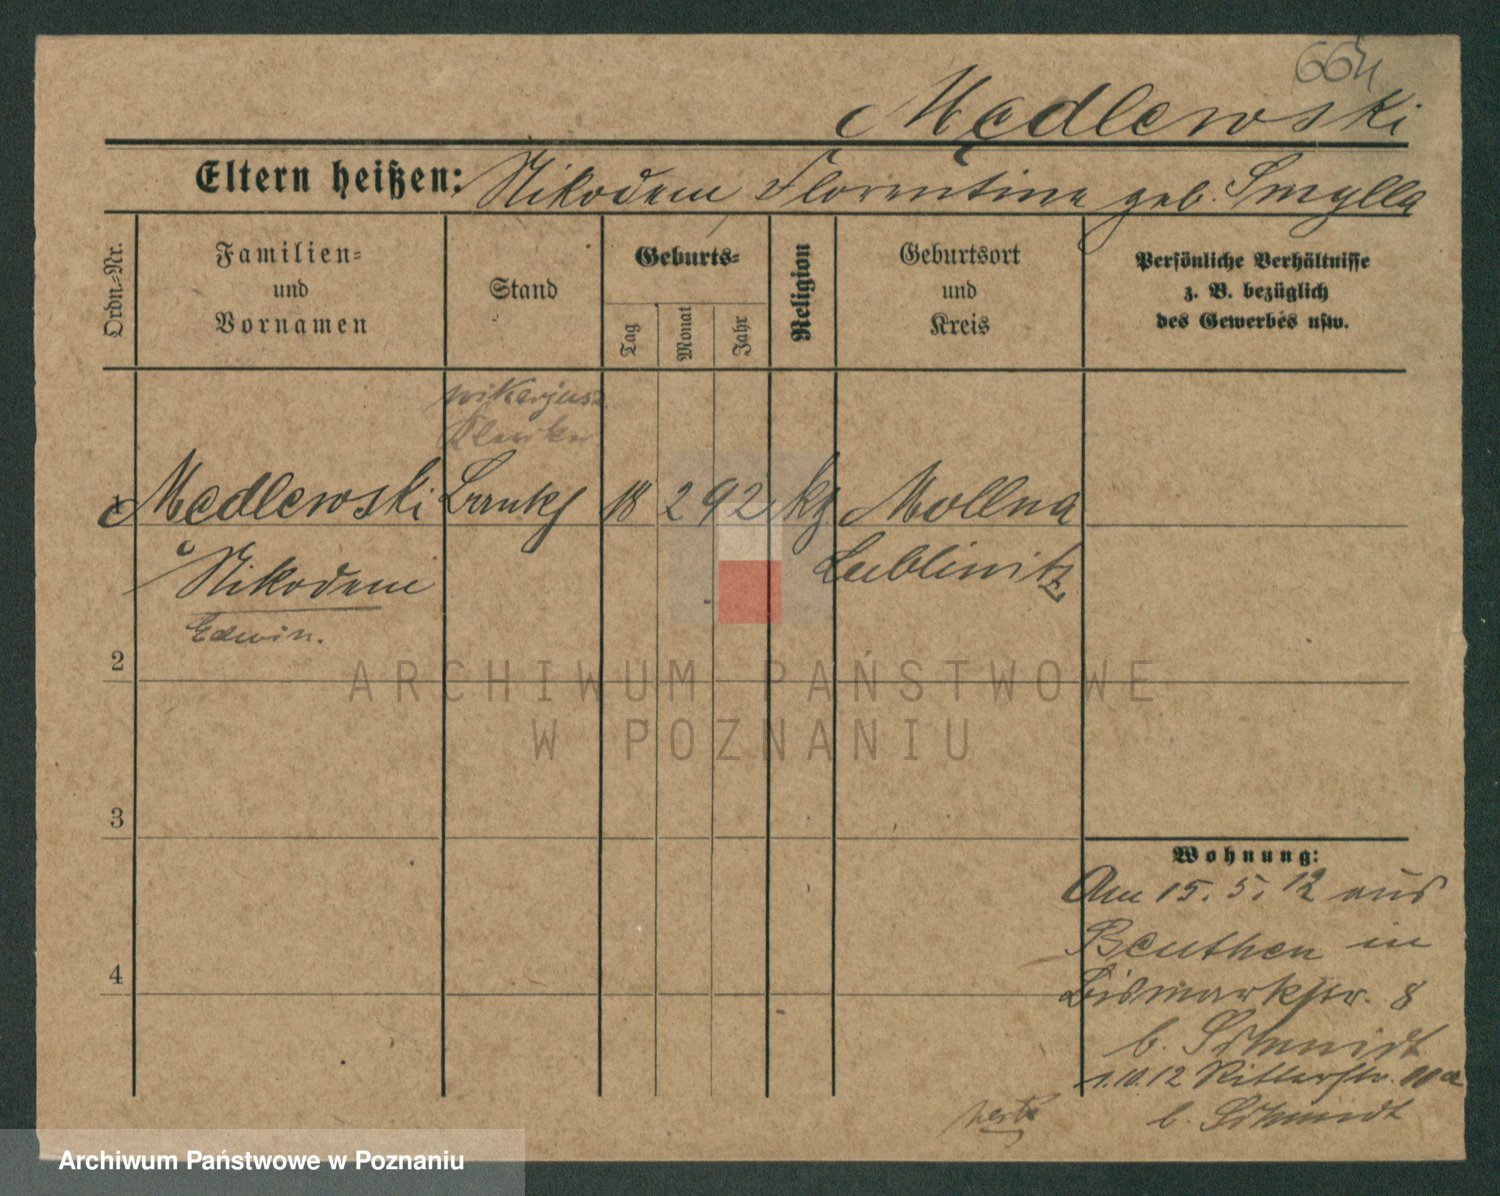 664
Mędlewski
Eltern heißen: Nikodem Florentine geb. Smylla
Ordn.-Nr.
Familien-
und
Vornamen
Stand
Geburts-
Tag
Monat
Jahr
Religion
Geburtsort
und
Kreis
Persönliche Verhältnisse
z. B. bezüglich
des Gewerbes usw.
1 Mędlewski 18 2 92 kf. Mollna
Nikodem Lublinitz
Edwin.
2
3
4
Wohnung:
Am 15. 5. 12 aus
Beuthen in
Bismarkstr. 8
b. Schmidt
1.10.12 Ritterstr.
b. Schmidt
ARCHIWUM PAŃSTWOWE
W POZNANIU
Archiwum Państwowe w Poznaniu